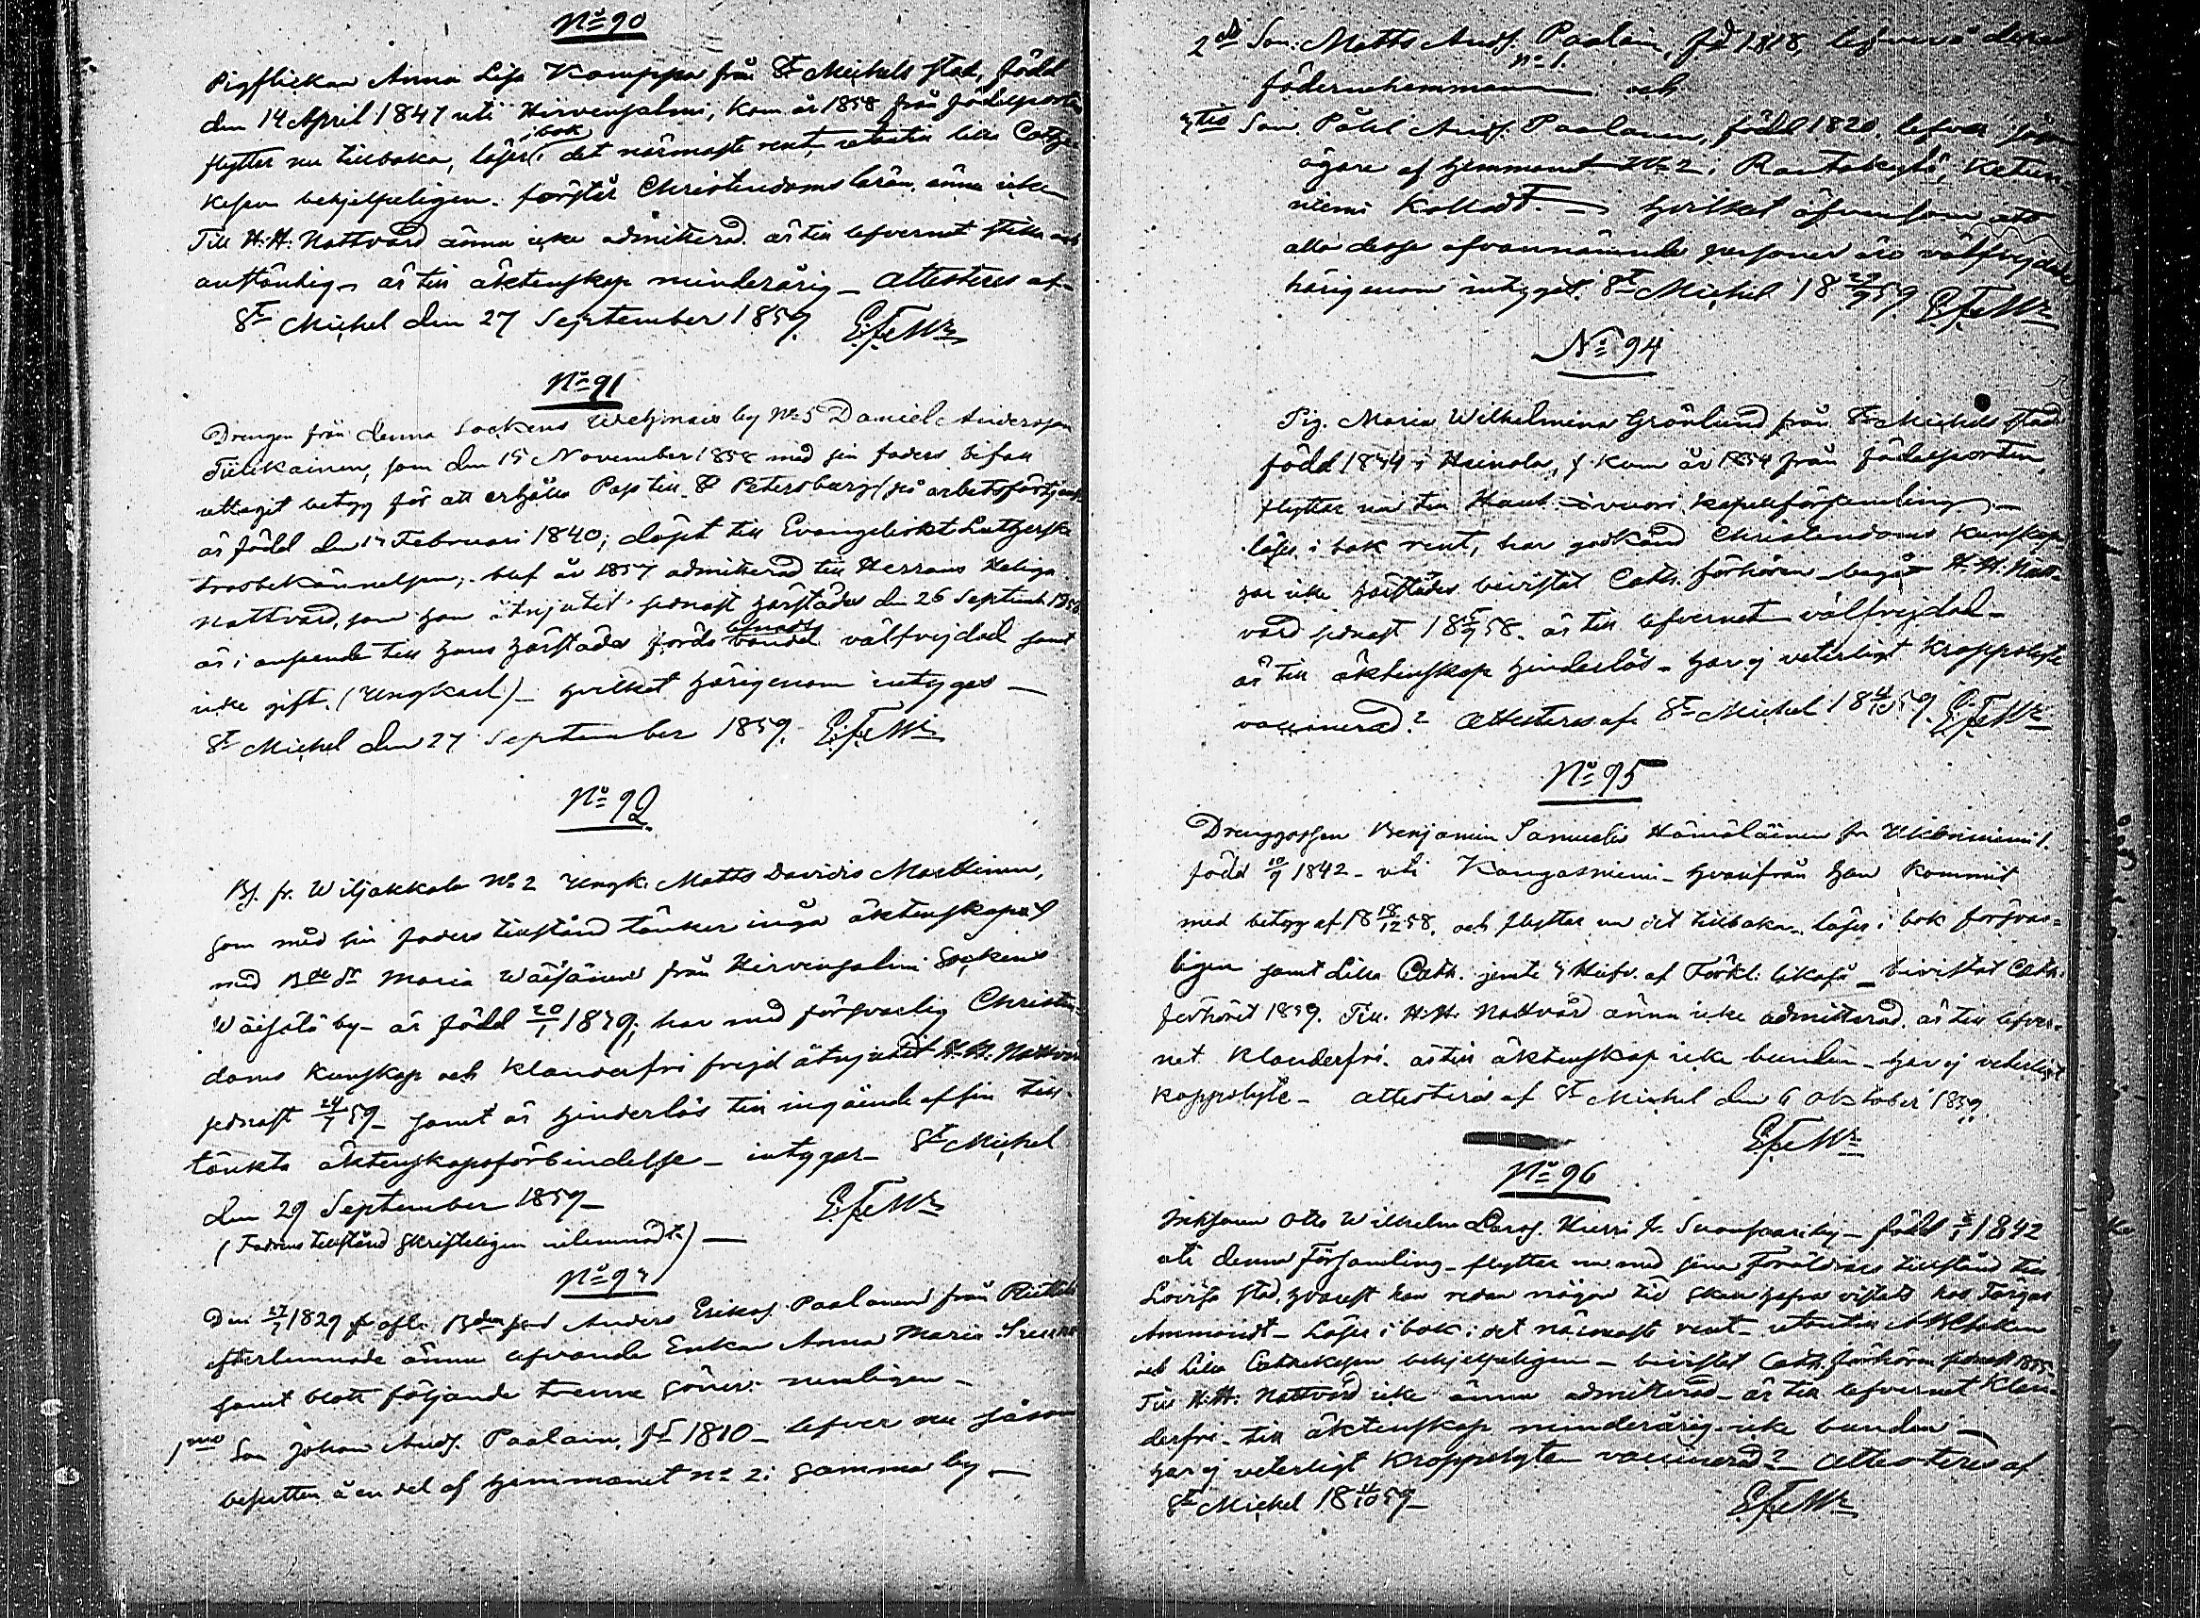 No 90
Pigflickan Anna Lisa Kamppa från St Michels stad, född
den 14 April 1847 uti Hirvensalmi, kom år 1858 från födelseorten
flyttar nu tillbaka, läser i bok det närmaste rent, utantill lilla Cathe-
kesen behjelpeligen. förstår Christendoms läran, ännu icke
Till H. H. Nattvard ännu icke admitterad. är till lefvernet stilla och
anständig, är till äktenskap minderårig – attesteras af
St Michel den 27 September 1859.
No 91
Drengen från denna Sockens by No 5 Daniel Andersson
Tiilikainen, som den 15 November 1858 med sin faders bifall
uttagit betyg för att erhålla Pass till St Petersburg på arbetsförtjenst
är född den Februari 1840, döpt till Evangeliskt Lutherska
trosbekännelsen; blef år 1857 admitterad till Herrans Heliga
Nattvard, som han åtnjutit sednast härstädes den 26 Septemb 1858
är i anseende till hans härstädes förda lefnads vandel välfrejdad samt
icke gift. (Ungkarl) – hvilket härigenom intygas –
St Michel den 27 September 1859.
No 92
Bs. fr. Wiljakkala No 2 Ungk. Matts Davids Marttinen,
som med sin faders tillstånd tänker ingå äktenskap
med Bde dr Maria Wäisänen från Hirvensalmi Sockens
Wäisälä by – är född 20/1 1839; har med försvarlig Christen-
doms kunskap och klanderfri frejd åtnjutit H. H. Nattvard
sednast 24/7 59 – samt är hinderlös till ingående af sin till-
tänkta äktenskapsförbindelse – intygas – St Michel
den 29 September 1859 –
(Fadrens tillstånd skrifteligen inlemnadt.) –
No 93
Den 27/7 1829 afl. Bden Anders Eriks. Paalanen från
efterlemnade ännu lefvande Enkan Anna Maria
samt blott följande trenne söner: nemligen –
1mo Son Johan Ands. Paalain, fd 1810 – lefver nu såsom
besutten å en del af Hemmanet No 2 i samma by –
2do Son: Matts Ands. Paalain, fd 1818, deras
No 1.
födernehemman och
3tio Son. Påhl Ands. Paalanen, född 1820. lefver såsom
ägare af Hemmanet No 2 i Rautakylä, Kattun-
niemi Kalladt. – hvilket äfvensom att
alla dessa ofvannämnde personer äro välfrejdade
härigenom intygat. St Michel 18 29/9 59.
No 94
Pig. Maria Wilhelmina Grönlund från St Michels stad
född 1844 i Heinola, kom år 1854 från födelseorten
flyttar nu till Haukivuori kapellförsamling –
läser i bok rent, har godkänd Christendoms kunskap
har icke härstädes bivistat Cath. förhören – begått H. H. Natt-
vard sednast 18 5/9 58. är till lefvernet välfrejdad –
är till äktenskap hinderlös – har ej veterligt kroppslyte
vaccinerad? Attesteras af. St Michel 18 4/10 59.
No 95
Drenggossen Benjamin Samuels Hämäläinen fr
född 10/9 1842 – uti Kangasniemi – hvarifrån han kommit
med betyg af 18 18/12 58. och flyttar nu dit tillbaka. läser i bok försvar-
ligen samt Lilla Cath. jemte Hufv. af Förkl. likaså – bivistat Cath.
förhöret 1859. Till H. H. Nattvard ännu icke admitterad. är till lefver-
net klanderfri. är till äktenskap icke bunden – har ej veterligt
kroppslyte – attesteras af St Michel den 6 Oktober 1859.
No 96
Otto Wilhelm Larss. Hurri fr. by – född 1842
uti denna Församling – flyttar nu med sina Föräldrars tillstånd till
Lovisa stad, hvarest han redan någon tid skall hafva vistats hos Färgar
Ammondt – Läser i bok i det närmaste rent – utantill ABCboken
och Lilla Cathekesen behjelpeligen – bivistat Cath. förhören sednast 1855 –
Till H. H. Nattvard icke ännu admitterad – är till lefvernet klan-
derfri – till äktenskap minderårig – icke bunden –
har ej veterligt kroppslyte – vaccinerad? – attesteras af
St Michel 18 4/10 59 –